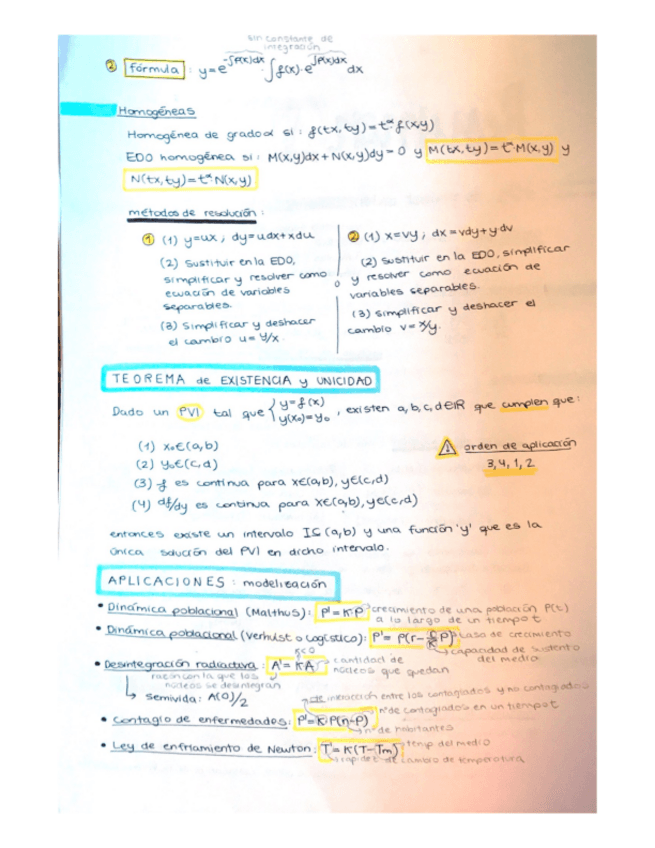 sin constante de
integración
② fórmula : y=e^(-∫P(x)dx) · ∫f(x)·e^(∫P(x)dx) dx
Homogéneas
Homogénea de grado α si : f(tx,ty)=t^α·f(x,y)
EDO homogénea si : M(x,y)dx + N(x,y)dy = 0 y M(tx,ty)=t^α M(x,y) y
N(tx,ty)=t^α N(x,y)
métodos de resolución :
① (1) y=ux ; dy=udx+xdu
(2) Sustituir en la EDO,
simplificar y resolver como
ecuación de variables
separables.
(3) Simplificar y deshacer
el cambio u= y/x.
o
② (1) x=vy ; dx=vdy+ydv
(2) Sustituir en la EDO, simplificar
y resolver como ecuación de
variables separables.
(3) Simplificar y deshacer el
cambio v= x/y.
TEOREMA de EXISTENCIA y UNICIDAD
Dado un PVI tal que { y=f(x) y(x₀)=y₀ , existen a,b,c,d∈ℝ que cumplen que:
(1) x₀∈(a,b)
(2) y₀∈(c,d)
(3) f es continua para x∈(a,b), y∈(c,d)
(4) df/dy es continua para x∈(a,b), y∈(c,d)
! orden de aplicación
3,4,1,2
entonces existe un intervalo I⊆(a,b) y una función 'y' que es la
única solución del PVI en dicho intervalo.
APLICACIONES : modelización
• Dinámica poblacional (Malthus): P'=K·P crecimiento de una población P(t)
a lo largo de un tiempo t
• Dinámica poblacional (Verhulst o Logístico): P'= P(r-r/K P) tasa de crecimiento
capacidad de sustento
del medio
K<0
• Desintegración radiactiva : A'= KA cantidad de
núcleos que quedan
razón con la que los
núcleos se desintegran
↳ semivida: A(0)/2
interacción entre los contagiados y no contagiados
nº de contagiados en un tiempo t
• Contagio de enfermedades: P'=K·P(n-P)
nº de habitantes
• Ley de enfriamiento de Newton: T'=K(T-Tm) temp del medio
rapidez de cambio de temperatura